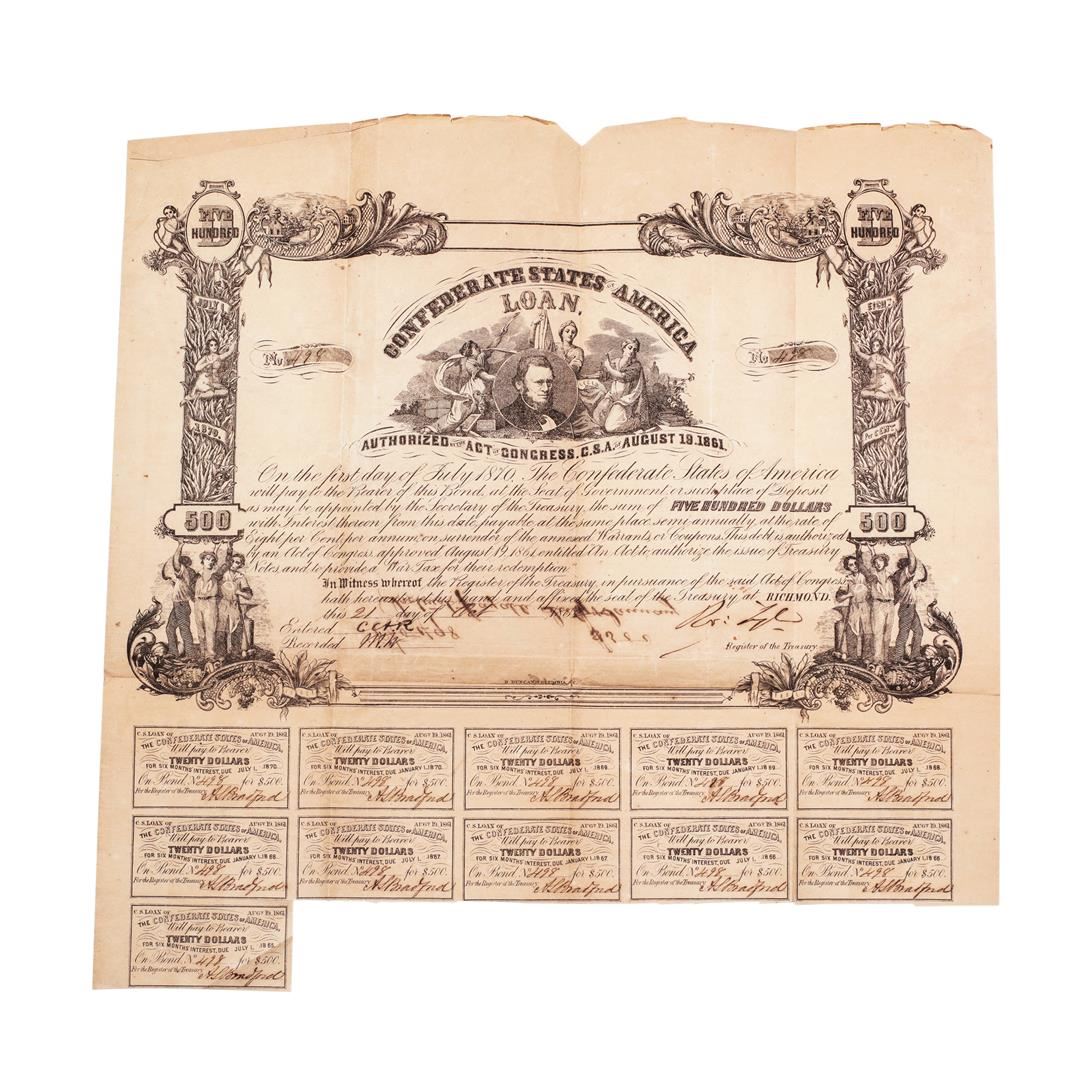 FIVE HUNDRED
FIVE HUNDRED
CONFEDERATE STATES OF AMERICA
LOAN,
JULY 1
1870.
EIGHT
Per CENT.
No 498
No 498
AUTHORIZED BY THE ACT OF CONGRESS, C.S.A. OF AUGUST 19.1861.
On the first day of July 1870, The Confederate States of America
will pay to the Bearer of this Bond, at the Seat of Government, or such place of Deposit
as may be appointed by the Secretary of the Treasury, the sum of FIVE HUNDRED DOLLARS
with Interest thereon from this date, payable at the same place, semi-annually, at the rate of
Eight per Cent per annum, on surrender of the annexed Warrants or Coupons. This debt is authorized
by an Act of Congress, approved August 19, 1861, entitled An Act to authorize the issue of Treasury
Notes, and to provide a War Tax for their redemption.
500
500
In Witness whereof the Register of the Treasury, in pursuance of the said Act of Congress
hath hereunto set his hand and affixed the seal of the Treasury at RICHMOND.
this 21 day of
Entered
Recorded
Register of the Treasury
C.S. LOAN OF AUGT 19, 1861
THE CONFEDERATE STATES OF AMERICA,
Will pay to Bearer
TWENTY DOLLARS
FOR SIX MONTHS INTEREST, DUE JULY 1, 1870.
On Bond, No 498 for $500.
For the Register of the Treasury A. S. Bradford
C.S. LOAN OF AUGT 19, 1861
THE CONFEDERATE STATES OF AMERICA,
Will pay to Bearer
TWENTY DOLLARS
FOR SIX MONTHS INTEREST, DUE JANUARY 1, 1870.
On Bond, No 498 for $500.
For the Register of the Treasury A. S. Bradford
C.S. LOAN OF AUGT 19, 1861
THE CONFEDERATE STATES OF AMERICA,
Will pay to Bearer
TWENTY DOLLARS
FOR SIX MONTHS INTEREST, DUE JULY 1, 1869.
On Bond, No 498 for $500.
For the Register of the Treasury A. S. Bradford
C.S. LOAN OF AUGT 19, 1861
THE CONFEDERATE STATES OF AMERICA,
Will pay to Bearer
TWENTY DOLLARS
FOR SIX MONTHS INTEREST, DUE JANUARY 1, 1869.
On Bond, No 498 for $500.
For the Register of the Treasury A. S. Bradford
C.S. LOAN OF AUGT 19, 1861
THE CONFEDERATE STATES OF AMERICA,
Will pay to Bearer
TWENTY DOLLARS
FOR SIX MONTHS INTEREST, DUE JULY 1, 1868.
On Bond, No 498 for $500.
For the Register of the Treasury A. S. Bradford
C.S. LOAN OF AUGT 19, 1861
THE CONFEDERATE STATES OF AMERICA,
Will pay to Bearer
TWENTY DOLLARS
FOR SIX MONTHS INTEREST, DUE JANUARY 1, 1868.
On Bond, No 498 for $500.
For the Register of the Treasury A. S. Bradford
C.S. LOAN OF AUGT 19, 1861
THE CONFEDERATE STATES OF AMERICA,
Will pay to Bearer
TWENTY DOLLARS
FOR SIX MONTHS INTEREST, DUE JULY 1, 1867.
On Bond, No 498 for $500.
For the Register of the Treasury A. S. Bradford
C.S. LOAN OF AUGT 19, 1861
THE CONFEDERATE STATES OF AMERICA,
Will pay to Bearer
TWENTY DOLLARS
FOR SIX MONTHS INTEREST, DUE JANUARY 1, 1867.
On Bond, No 498 for $500.
For the Register of the Treasury A. S. Bradford
C.S. LOAN OF AUGT 19, 1861
THE CONFEDERATE STATES OF AMERICA,
Will pay to Bearer
TWENTY DOLLARS
FOR SIX MONTHS INTEREST, DUE JULY 1, 1866.
On Bond, No 498 for $500.
For the Register of the Treasury A. S. Bradford
C.S. LOAN OF AUGT 19, 1861
THE CONFEDERATE STATES OF AMERICA,
Will pay to Bearer
TWENTY DOLLARS
FOR SIX MONTHS INTEREST, DUE JANUARY 1, 1866.
On Bond, No 498 for $500.
For the Register of the Treasury A. S. Bradford
C.S. LOAN OF AUGT 19, 1861
THE CONFEDERATE STATES OF AMERICA,
Will pay to Bearer
TWENTY DOLLARS
FOR SIX MONTHS INTEREST, DUE JULY 1, 1865.
On Bond, No 498 for $500.
For the Register of the Treasury A. S. Bradford